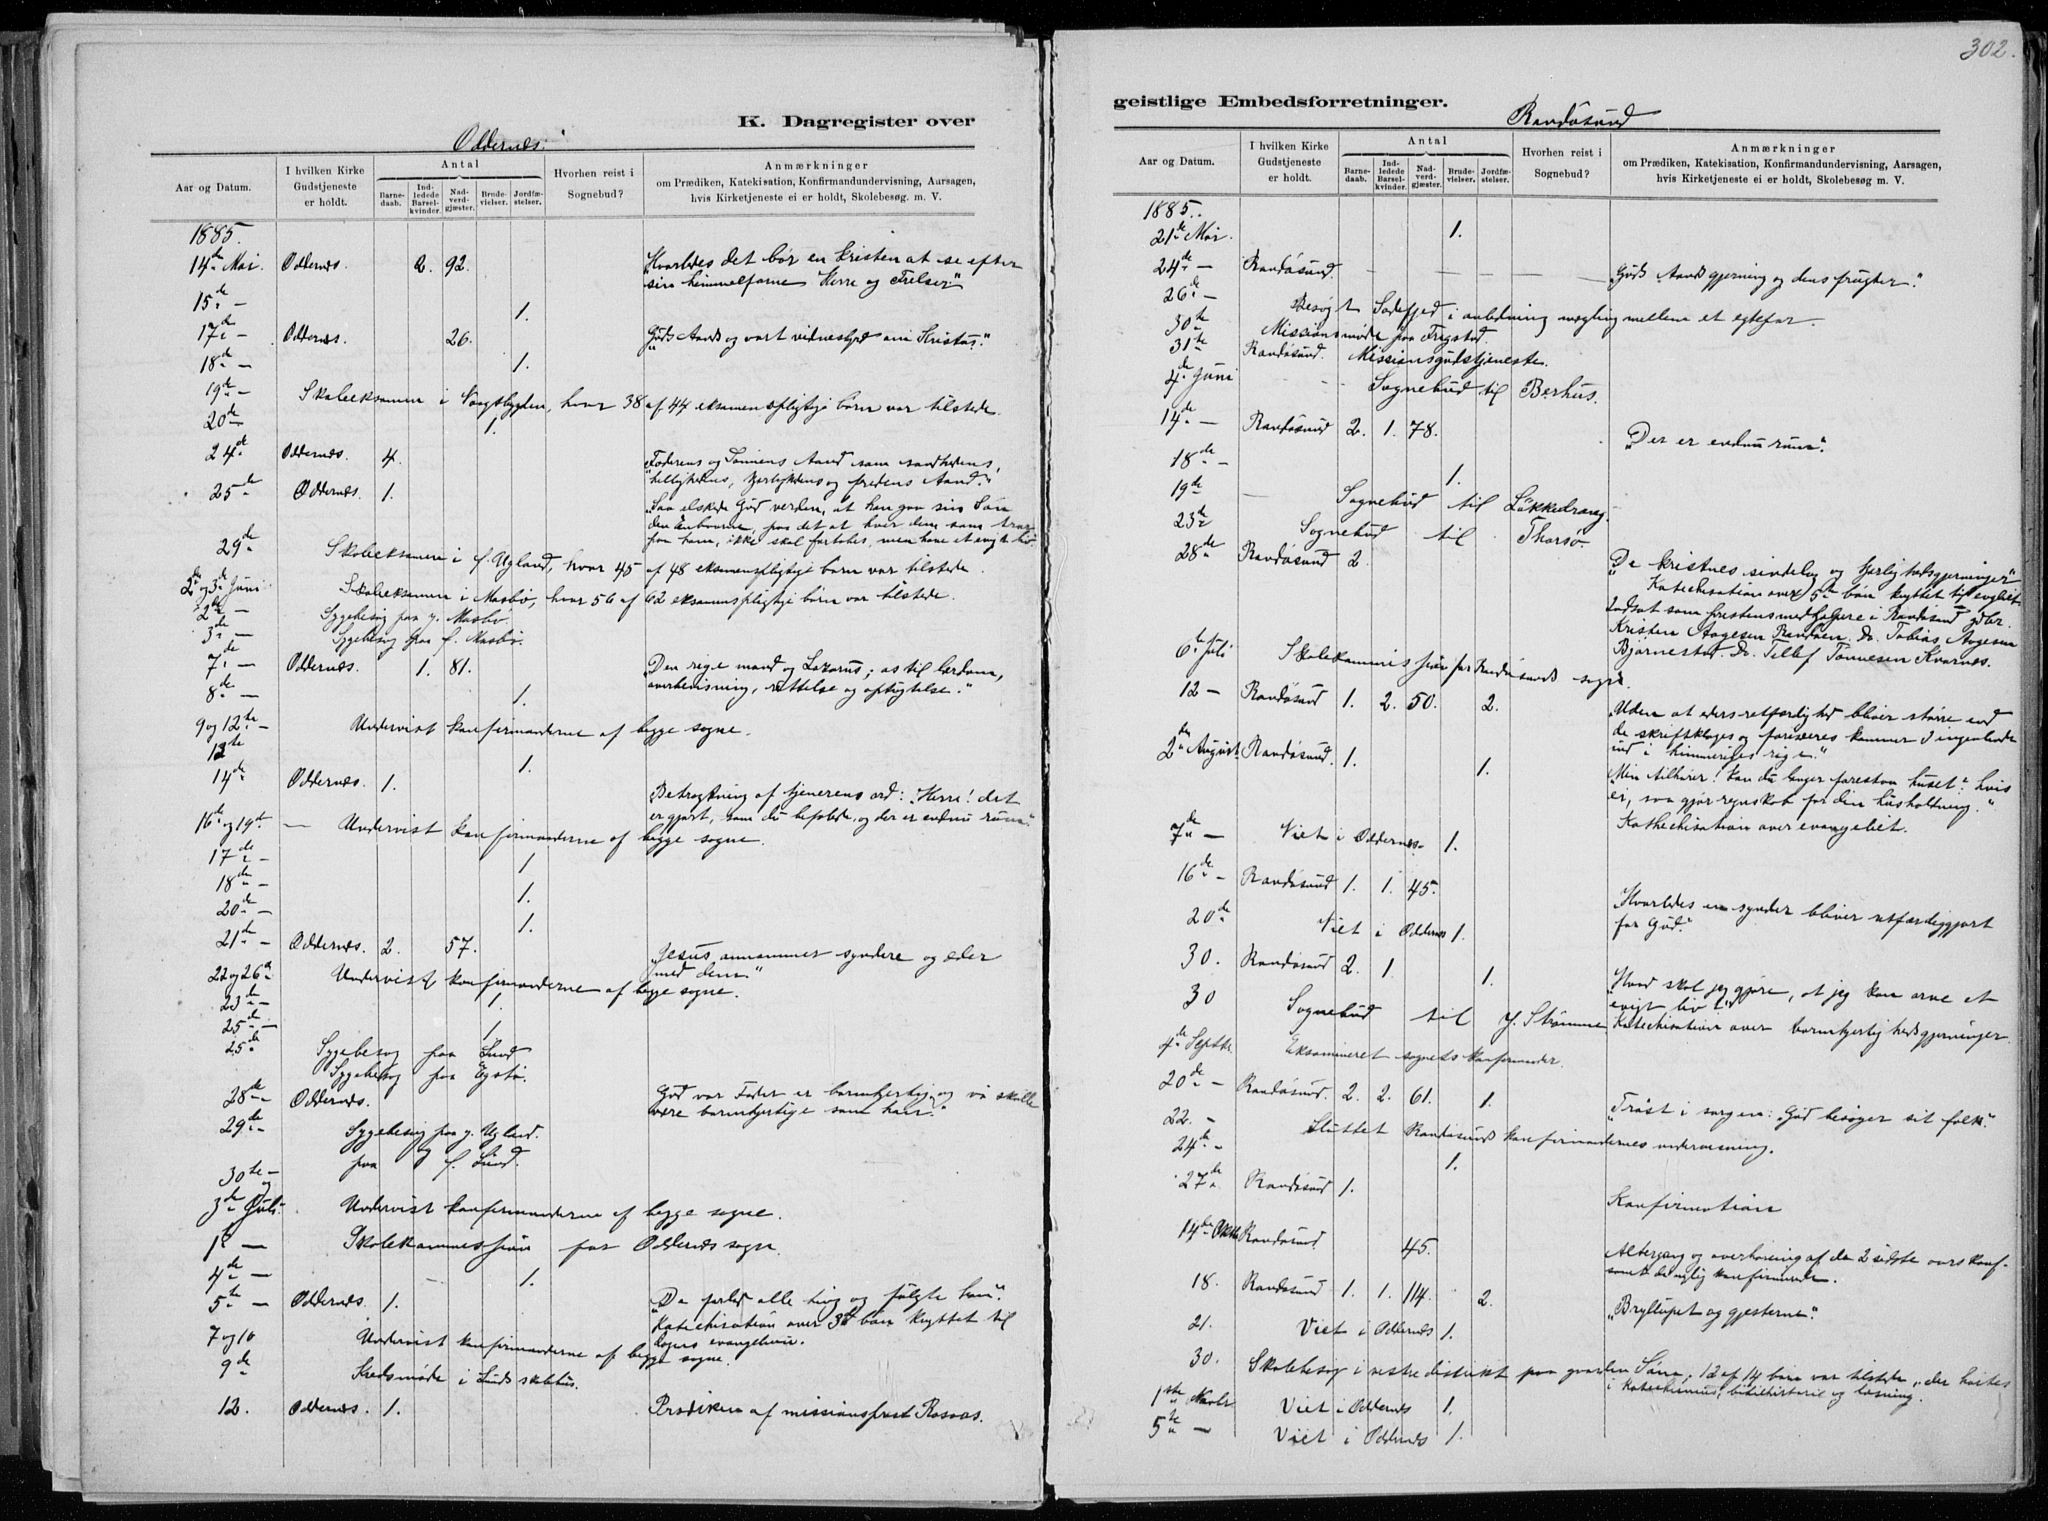 302.
K. Dagregister over
Oddernes.
Aar og Datum.
I hvilken Kirke Gudstjeneste er holdt.
Antal
Barnedaab.
Indledede Barselkvinder.
Nadverdgjæster.
Brudevielser.
Jordfæstelser.
Hvorhen reist i Sognebud?
Anmærkninger
om Prædiken, Katekisation, Konfirmandundervisning, Aarsagen,
hvis Kirketjeneste ei er holdt, Skolebesøg. m. V.
1885.
14de Mai. Oddernes. 2. 92. "Hvorledes det bør en kristen at se efter
sin himmelfarne Herre og Frelser."
15de — 1.
17de — Oddernes. 26. "Guds Aand og vort vidnesbyrd om Kristus."
18de — 1.
19de — Skoleeksamen i Vaagsbygden, hvor 38 af 44 eksamenspligtige børn var tilstede.
20de — 1.
24de Oddernes. 4. "Faderens og Sønnens Aand som sandhedens,
hellighedens, kjærlighedens og fredens Aand."
25de Oddernes. 1. "Saa elskede Gud verden, at han gav sin Søn
den enbaarne, paa det at hver den som tror
paa ham, ikke skal fortabes, men have et evigt liv
29de Skoleeksamen i f. Ugland, hvor 45 af 48 eksamenspligtige børn var tilstede.
2den og 3de Juni Skoleeksamen i Mosbø, hvor 56 af 62 eksamenspligtige børn var tilstede.
2den — Sygebesøg paa y. Mosbø.
3de — Sygebesøg paa f. Mosbø.
7de — Oddernes. 1. 81. "Den rige mand og Lazarus; os til lærdom,
overbevisning, rettelse og optugtelse."
8de — 1.
9 og 12te — Undervist konfirmanderne af begge sogne.
12te 1.
14de Oddernes. 1. Betragtning af tjenerens ord: "Herre! det
er gjort, som du befalede, og der er endnu rum."
16de og 19de. — Undervist konfirmanderne af begge sogne.
17de — 1
18de — 1.
20de — 1.
21de — Oddernes. 2. 57. "Jesus annammer syndere og æder
med dem."
22 og 26de Undervist konfirmanderne af begge sogne.
23de — 1.
25de — 1
25de Sygebesøg paa Lund
Sygebesøg paa Egsbø.
28de Oddernes. "Gud vor Fader er barmhjertig, og vi skulle
være barmhjertige som han."
29de Sygebesøg paa y. Ugland.
og
paa f. Lund.
30te — og
3de Juli. Undervist konfirmanderne af begge sogne.
1ste — Skolekommission for Oddernes sogn.
4de — 1.
5te — Oddernes. 1. "De forlod alle ting og fulgte ham."
Katechisation over 3die bøn knyttet til
dagens evangelium.
7 og 10 Undervist konfirmanderne af begge sogne.
9de Kredsmøde i Lunds skolehus.
12. Oddernes. 1. Prædiken af missionsprest Rosaas.
geistlige Embedsforretninger.
Randøsund
Aar og Datum.
I hvilken Kirke Gudstjeneste er holdt.
Antal
Barnedaab.
Indledede Barselkvinder.
Nadverdgjæster.
Brudevielser.
Jordfæstelser.
Hvorhen reist i Sognebud?
Anmærkninger
om Prædiken, Katekisation, Konfirmandundervisning, Aarsagen,
hvis Kirketjeneste ei er holdt, Skolebesøg. m. V.
1885.
21de Mai. 1.
24de — Randøsund. — — — — — — "Guds Aands gjerning og dens frugter."
26de — Besøgt i anledning mægling mellem et egtepar.
30te Missionsmøde paa Frigstad.
31te Randøsund. Missionsgudstjeneste.
4de Juni Sognebud til Berhus.
14de — Randøsund 2. 1. 78. "Der er endnu rum."
18de — 1.
19de — Sognebud til Løkkedrang.
23de Sognebud til Tharsø.
28de Randøsund 2. "De kristnes sindelag og kjærlighedsgjerninger"
Katechisation over 5te bøn knyttet til evgliet.
Indsat som prestens medhjælpere i Randøsund gdbr.
Kristen Aagesen Randøen. do. Tobias Aagesen
Bjørnestad. do. Tellef Tønnesen Kvarnes.
6te Juli Skolekommission for Randøsunds sogn.
12 — Randøsund 1. 2. 50. 2. "Uden at eders retfærdighed bliver større end
de skriftkloges og farisæeres kommer I ingenlunde
ind i himmeriges rige."
2den August. Randøsund. 1. 1. "Min tilhører! kan du længer forestaa huset? hvis
ei, saa gjør regnskab for din husholdning."
Kathechisation over evangeliet.
7de — Viet i Oddernes. 1.
16de — Randøsund 1. 1. 45. "Hvorledes en synder bliver retfærdiggjort
for Gud."
20de Viet i Oddernes 1.
30. Randøsund 2. 1. 1. "Hvad skal jeg gjøre, at jeg kan arve et
evigt liv?"
30 Sognebud til y. Strømme Katechisation over barmhjertighedsgjerninger.
4de Septbr. Eksamineret sognets konfirmander.
20de — Randøsund. 2. 2. 61. 1. "Trøst i sorgen: Gud besøger sit folk."
22. — Sluttet Randøsunds konfirmandernes undervisning.
24de — 1.
27de Randøsund 1. Konfirmation
14de Oktbr Randøsund 45. Altergang og overhøring af de 2 sidste aars konf-
samt de nylig konfirmerede.
18. Randøsund 1. 1. 114. 2. "Bryllupet og gjesterne."
21. Viet i Oddernes 1.
30. Skolebesøg i vestre distrikt paa gaarden Sørn, 12 af 14 børn var tilstede, der hørtes
i Katechismus, bibelhistorie og læsning.
1ste Novbr Viet i Oddernes 1.
5te — Viet i Oddernes 1.